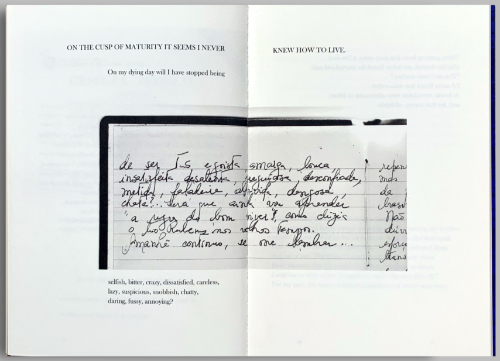 ON THE CUSP OF MATURITY IT SEEMS I NEVER KNEW HOW TO LIVE.
On my dying day will I have stopped being
de ser egoísta, louca
insatisfeita, preguiçosa, desconfiada,
metida, faladeira, dengosa,
chata?... Será que ainda vou aprender
"a regra do bom viver", como dizia
o tio Rubens nos velhos tempos.
Amanhã continuo, se me lembrar...
mas
da
Não
selfish, bitter, crazy, dissatisfied, careless,
lazy, suspicious, snobbish, chatty,
daring, fussy, annoying?